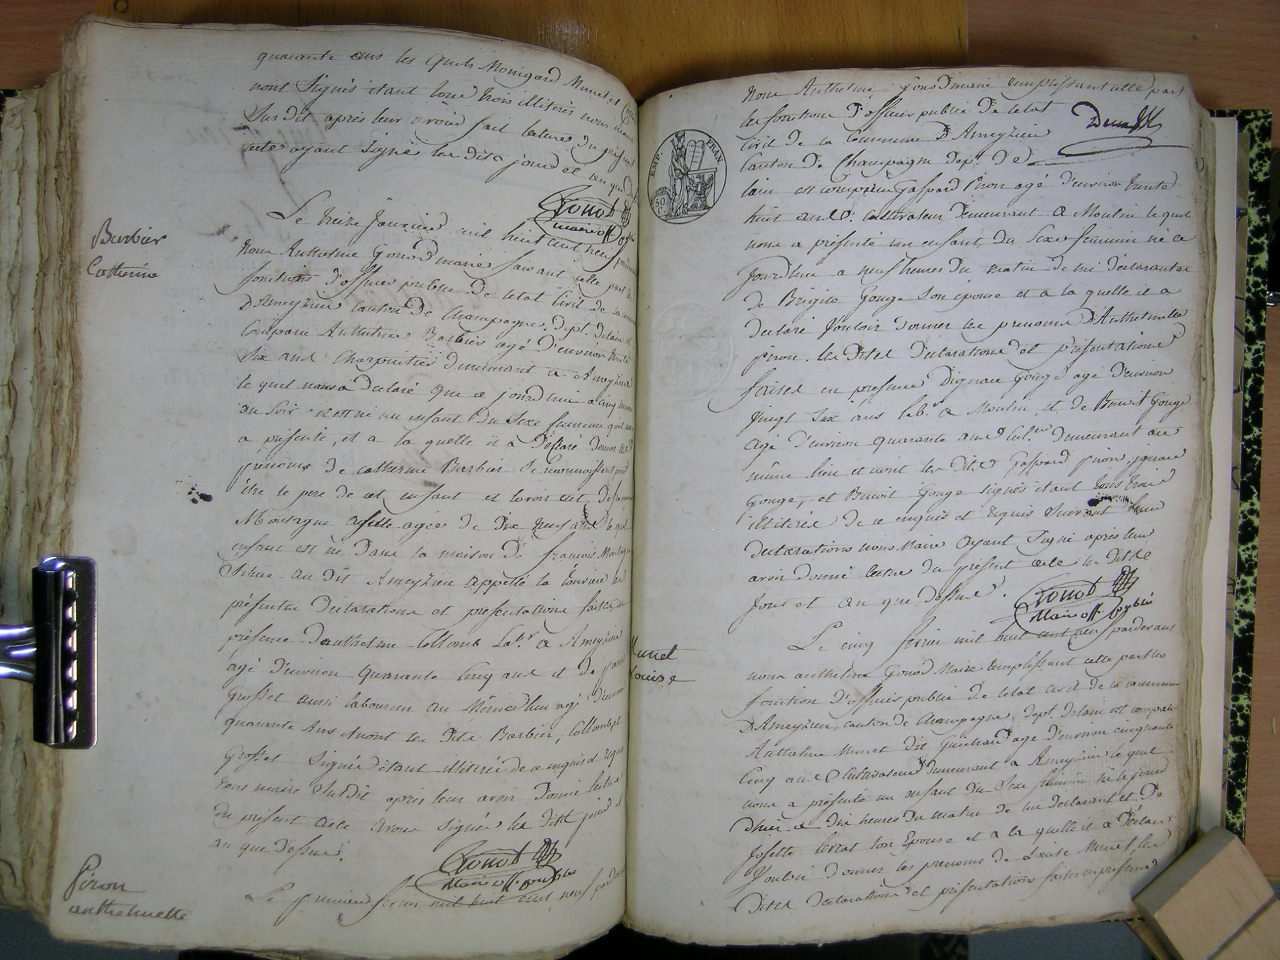 quarante ans les quels Monigard Munet et
nont Signés étant tous trois illiterés nous maire
Sus dit après leur avoir fait lecture du présent
acte ayant Signés les dits jour et an que
Gonod
maire off. public
Barbier
Catherine
Le treize Janvier mil huit cent neuf
Nous Anthelme Gonod maire faisant cette part
fonction d'officier public de létat Civil de la
D'Ameyzieu canton de Champagne, dept. delain
Comparu Anthelme Barbier agé d'environ trente
Six ans Charpentier demeurant a Ameyzieu
le quel nous a declaré que ce jourdhui a cinq
au Soir est né un enfant du Sexe feminin
a présenté, et a la quelle il a declaré donner les
prénoms de Catherine Barbier Se reconnoissant
être le pere de cet enfant et lavoir eut de
Montagne agée de dix neuf ans le quel
enfant est né dans la maison de françois
Sieur au dit Ameyzieu appellé la
présentes declarations et présentations faites
présence danthelme Collomb Labr. a Ameyzieu
agé d'environ quarante Cinq ans et de
grosset aussi laboureur au même lieu agé d'environ
quarante ans nont les dits Barbier, Collomb et
Grosset Signés étant illiterés de ce enquis et requis
nous maire Susdit après leur avoir Donné lecture
du present acte avons Signés les dits jour et
an que dessus.
Gonod
Maire off. public
Piron
anthelmette
Le premier fevrier mil huit cent neuf pardevant
nous Anthelme Gonod maire remplissant cette part
les fonctions d'officier public de létat
Civil de la Commune d'Ameyzieu
Canton de Champagne dept. de
lain est comparu Gaspard Piron agé d'environ trente
huit ans cultivateur demeurant a Moulin le quel
nous a présenté un enfant du Sexe feminin né ce
Jourdhui a neuf heures du matin de lui déclarant et
de Brigite Gouge Son épouse et a la quelle il a
declaré Vouloir donner les prenoms d'Anthelmette
piron. les dites declarations et présentations
faites en présence D'ignace Gouge agé d'environ
Vingt Six ans labr. a Moulin et de Benoit Gouge
agé d'environ quarante ans cult. demeurant au
même lieu et nont les dits Gaspard piron, ignace
Gouge, et Benoit Gouge Signés étant tous trois
illiterés de ce enquis et requis Suivant leur
declarations nous Maire Ayant Signé après leur
avoir donné lecture du présent acte les dits
Jour et an que dessus.
Gonod
Maire off. public
EMP. FRAN.
50
Munet
Louise
Le cinq fevrier mil huit cent neuf pardevant
nous anthelme Gonod Maire remplissant cette part les
fonction d'officier public de letat civil de la commune
D'Ameyzieu, canton de Champagne, dept. delain est comparu
Anthelme Munet dit agé d'environ cinquante
Cinq ans Cultivateur demeurant a Ameyzieu le quel
nous a présenté un enfant du Sexe feminin né le jour
dhui a dix heures du matin de lui déclarant et de
Josette Son Epouse et a la quelle il a Déclaré
Vouloir donner les prenoms de Louise Munet, les
dites declarations et présentations faites en présence